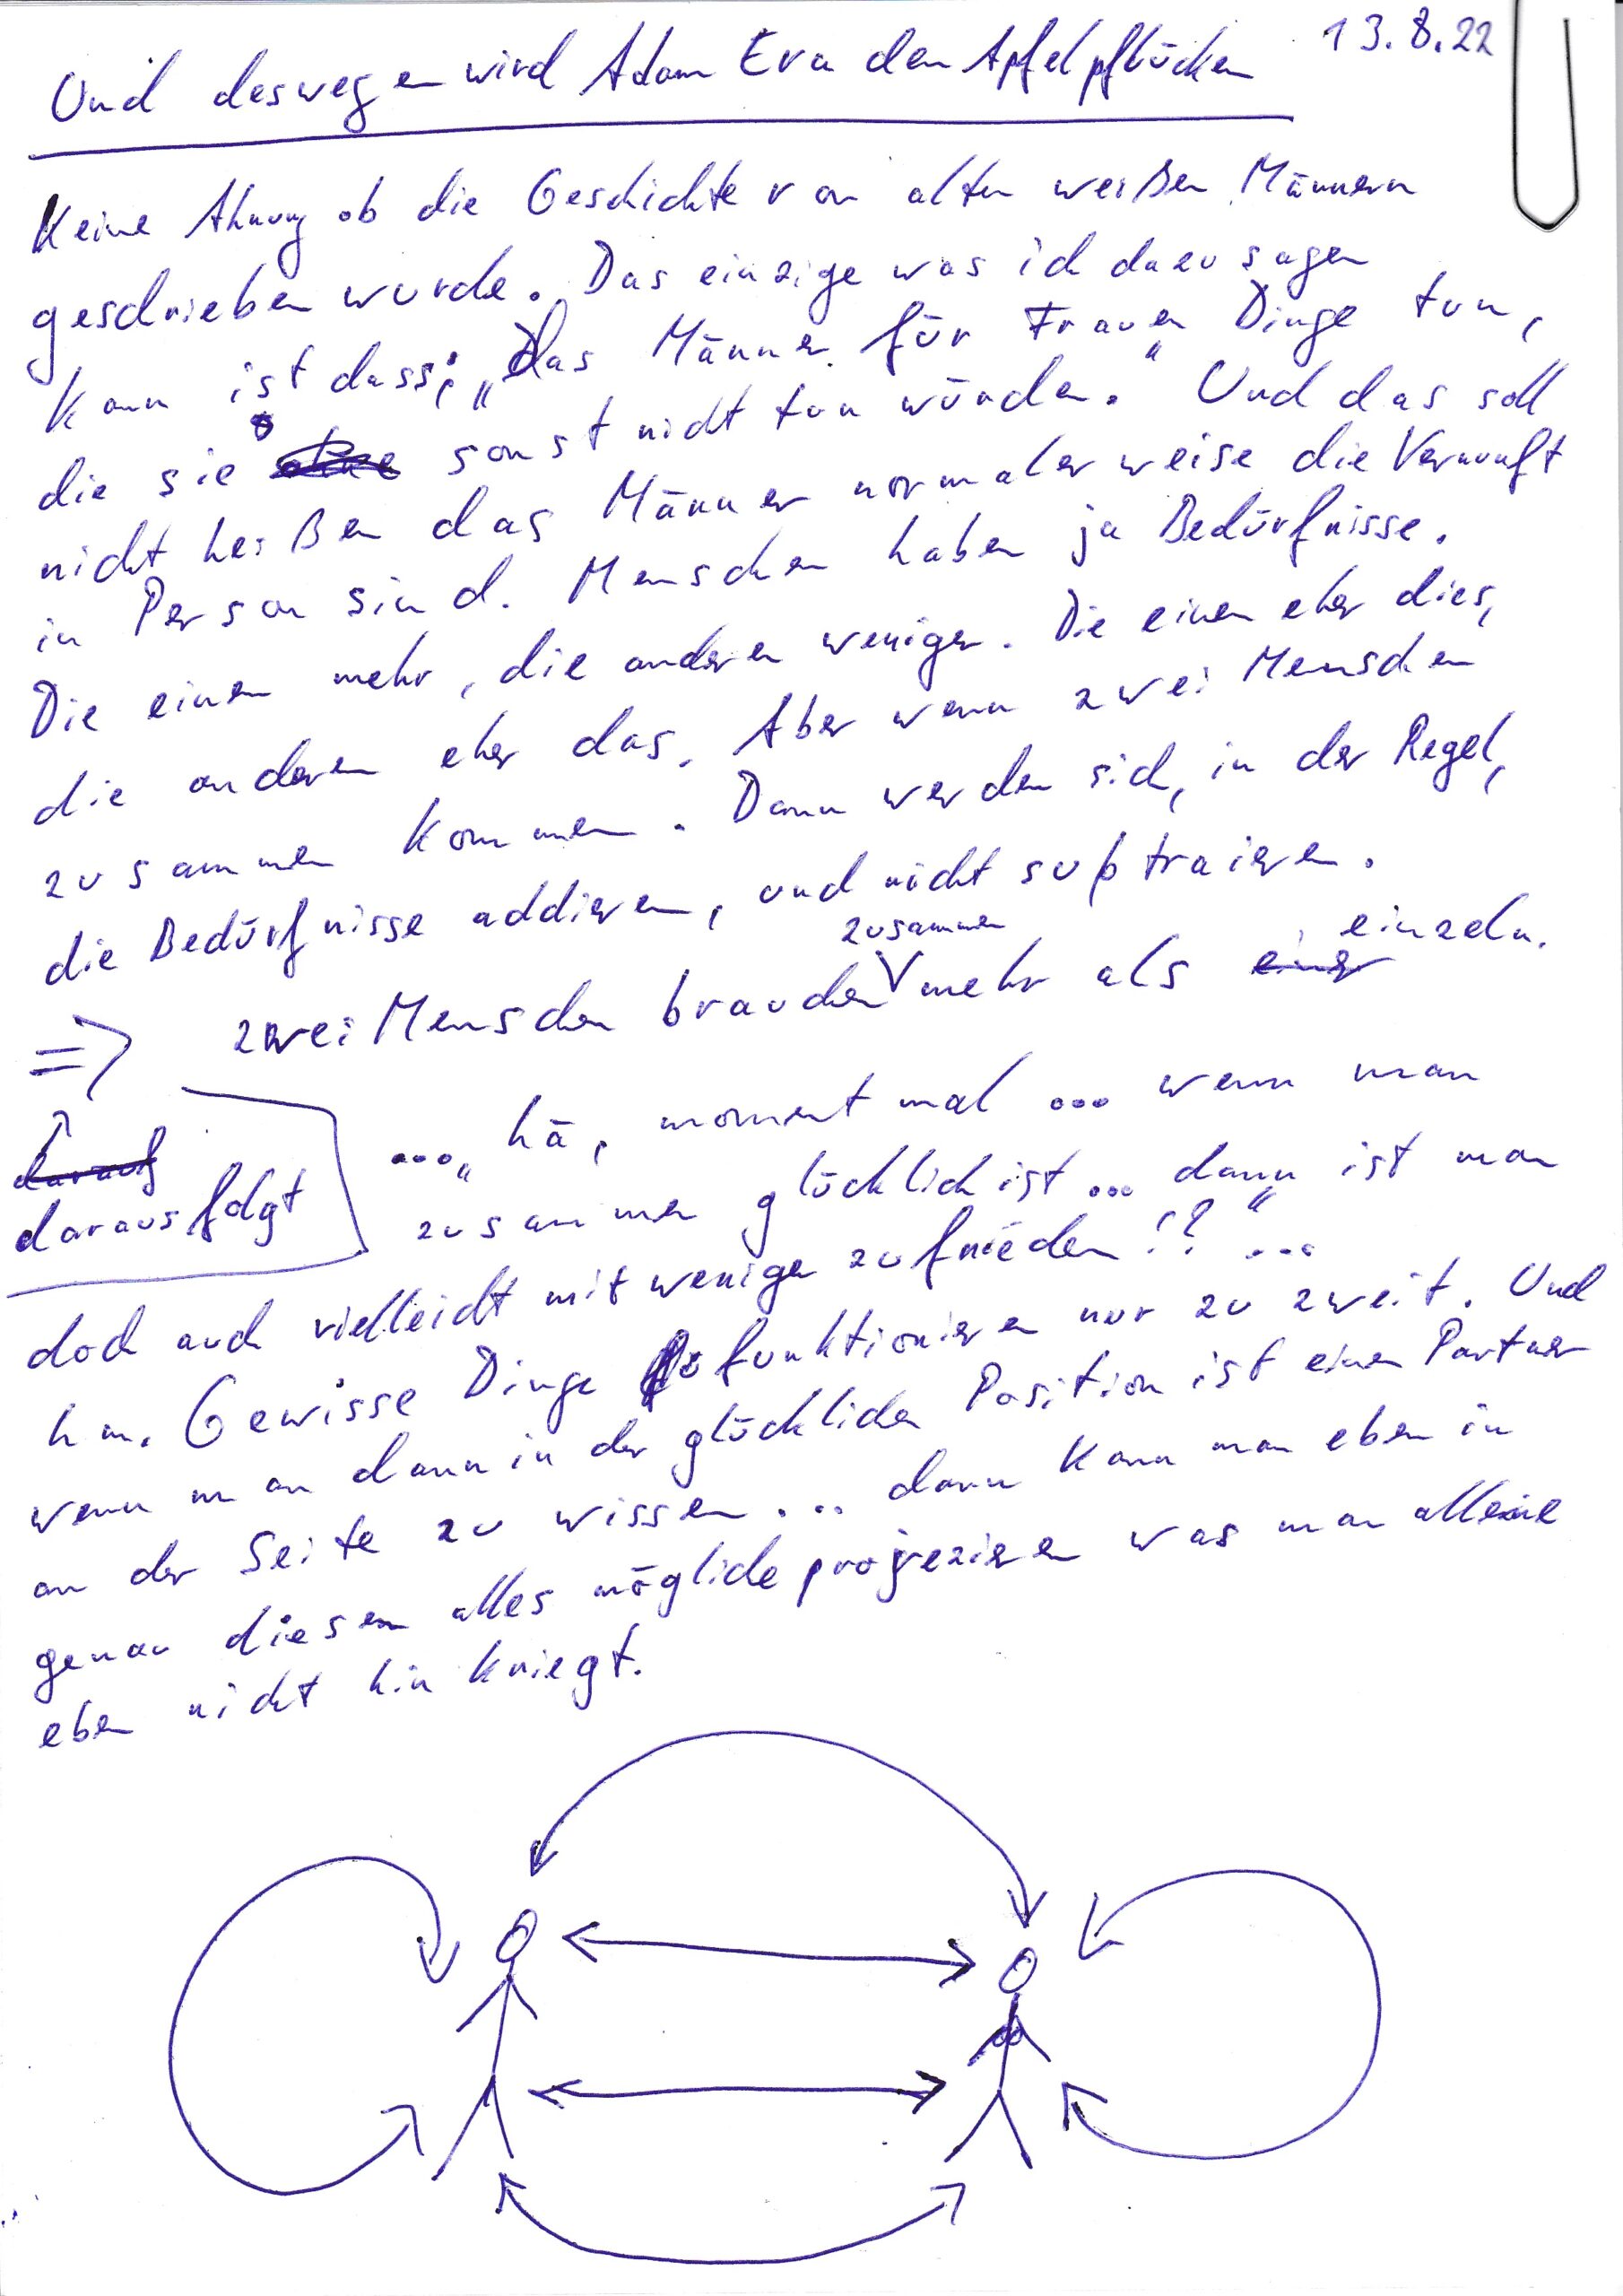 13.8.22
Und deswegen wird Adam Eva den Apfel pflücken
Keine Ahnung ob die Geschichte von alten weißen Männern
geschrieben wurde. Das einzige was ich dazu sagen
kann ist dass; „Das Männer für Frauen Dinge tun,
die sie sonst nicht tun würden.“ Und das soll
nicht heißen das Männer normalerweise die Vernunft
in Person sind. Menschen haben ja Bedürfnisse.
Die einen mehr, die anderen weniger. Die einen eher dies,
die anderen eher das. Aber wenn zwei Menschen
zusammen kommen. Dann werden sich, in der Regel,
die Bedürfnisse addieren, und nicht subtraieren.
=> zwei Menschen brauchen zusammen mehr als einer einzeln.
darauf
daraus folgt
...„ hä, moment mal ... wenn man
zusammen glücklich ist ... dann ist man
doch auch vielleicht mit weniger zufrieden!?“ ...
hm. Gewisse Dinge funktionieren nur zu zweit. Und
wenn man dann in der glücklichen Position ist einen Partner
an der Seite zu wissen ... dann kann man eben in
genau diesen alles mögliche projezieren was man alleine
eben nicht hin kriegt.